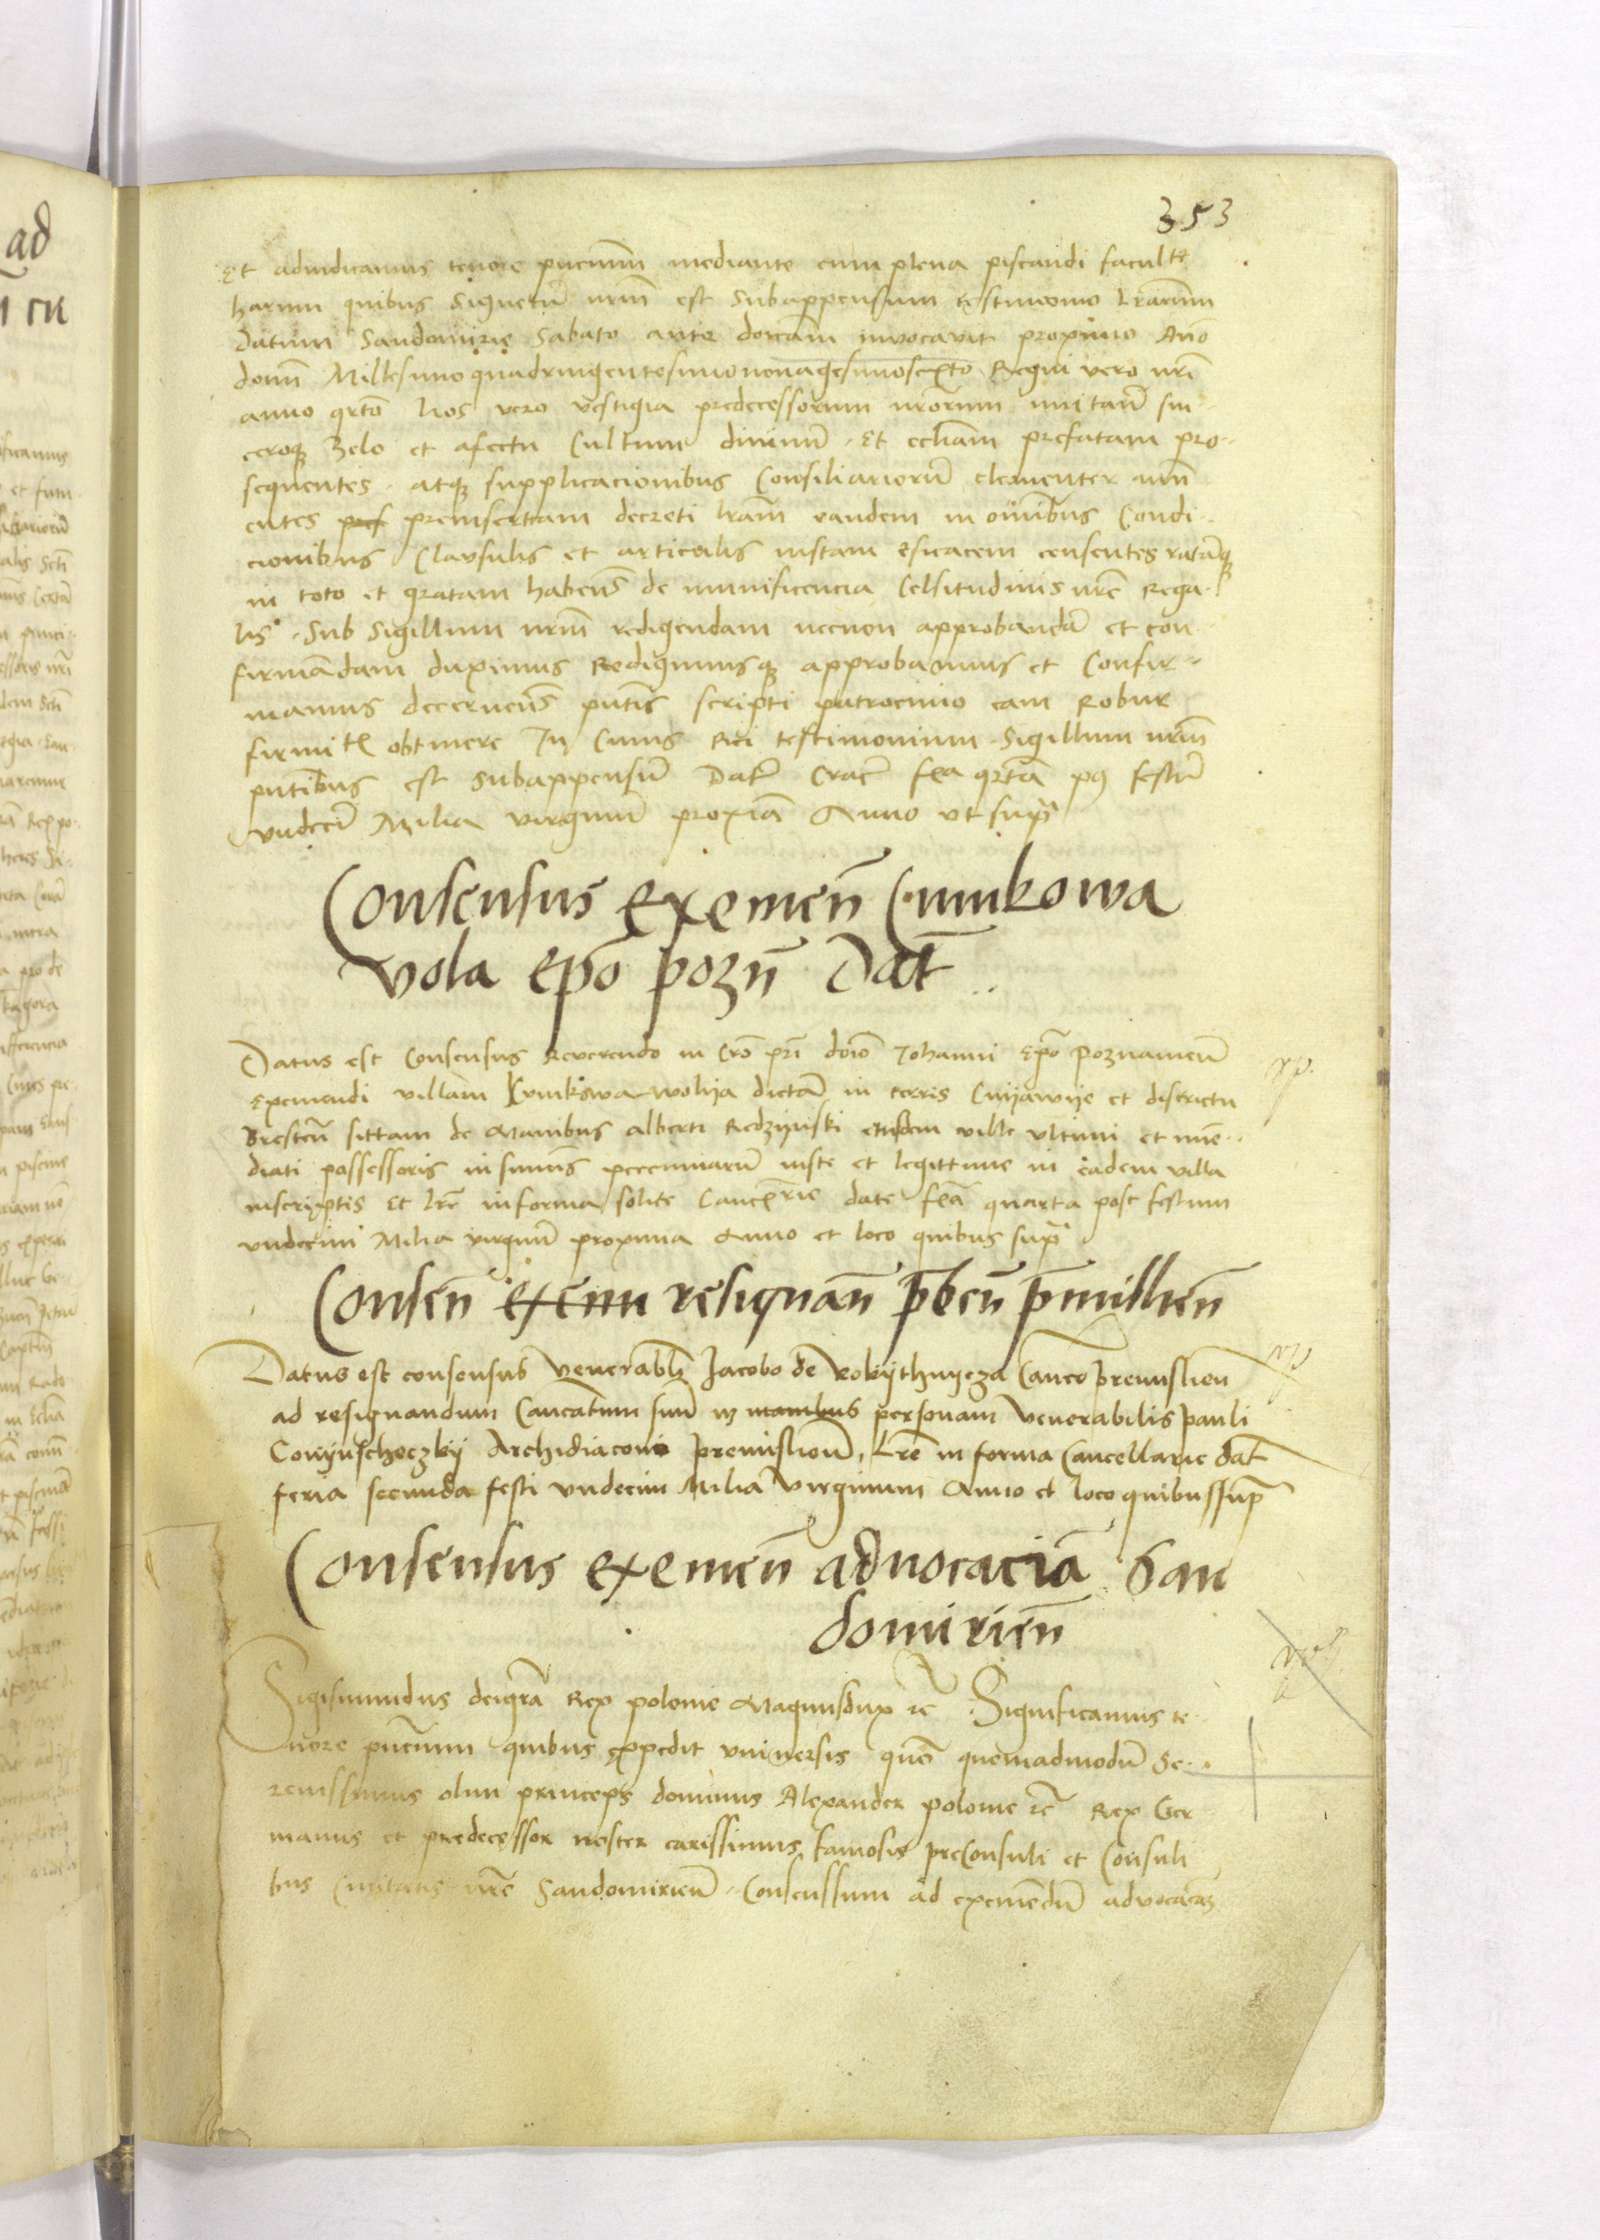 353
Et adiudicamus tenore pñcium mediante cum plena piscandi facultẽ
harum quibus Signetũ nrm̃ est Subappensum testimonio lrarum
Datum Sandomirie Sabato ante domcam̃ invocavit proximo Año
domñ Millesimo quadringentesimo nonagesimosexto Regni vero nrĩ
anno qrtõ Nos vero vestigia predecessorum nrõrum imitañ sin
ceroqz zelo et afectu Cultum divinũ Et ecliam̃ prefatam pro
sequentes atqz supplicacionibus Consiliariorũ clementer ann
entes pref preinsertam decreti lram̃ eandem in oĩnibus Condi
cionibus Clausulis et articulis iustam eficacem censentes ratãqz
in toto et gratam habeñs de munificencia Celsitudinis nrẽ Rega
lis Sub Sigillum nrm̃ redigendam necnon approbandã et con
firmãdam duximus Redigimusqz approbamus et Confir
mamus decerneñs pñtis scripti patrocinio eam Robur
firmitẽ obtinere In Cuius Rei testimonium Sigillum nrm̃
pñtibus est subappensũ Datũ Crac̃ fẽa qrtã pꝰ festũ
vndeciĩ Milia virginũ proxiã Anno vt supᵃ
Consensus exemeñ Cunikowa
vola ep̃o pozñ Dat̃
Datus est Consensus Reverendo in Crõ prĩ doĩo Johanni Ep̃o Poznanieñ
Eximendi villam Kunikowa wolya dictã in terris Cuyawye et districtu
Bresteñ sittam de Manibus alberti Redzynski eiusdem ville vltimi et ime
diati possessoris in sumĩs pecuniarũ iuste et legittime in eadem villa
inscriptis Et lrẽ in forma solite Canc̃rie date fẽa quarta post festum
vndecim Milia virginũ proxima Anno et loco quibus supᵃ
Conseñ exemi resignañ p̃beñ p̃mislieñ
Datus est consensus Venerabli Jacobo de Rokythnycza Canco Premislien
ad resignandum Cancatum suũ in manibus personam Venerabilis Pauli
Conynschoczky Archidiaconi Premislieñ Lrẽ in forma Cancellarie dat̃
feria secunda festi vndecim Milia Virginum Anno et loco quibus supᵃ
Consensus exemeñ advocaciã San
domirieñ
Sigismundus deigrã Rex polonie Magnusdux rc̃ Significamus te
nore pñcium quibus expedit vniversis quõ quemadmodũ Se
renissimus olim princeps dominus Alexander polonie rc̃ Rex Ger
manus et predecessor noster carissimus famosis preConsuli et Consuli
bus Civitatis nrẽ Sandomirieñ Consensum ad eximẽdũ advocaciã